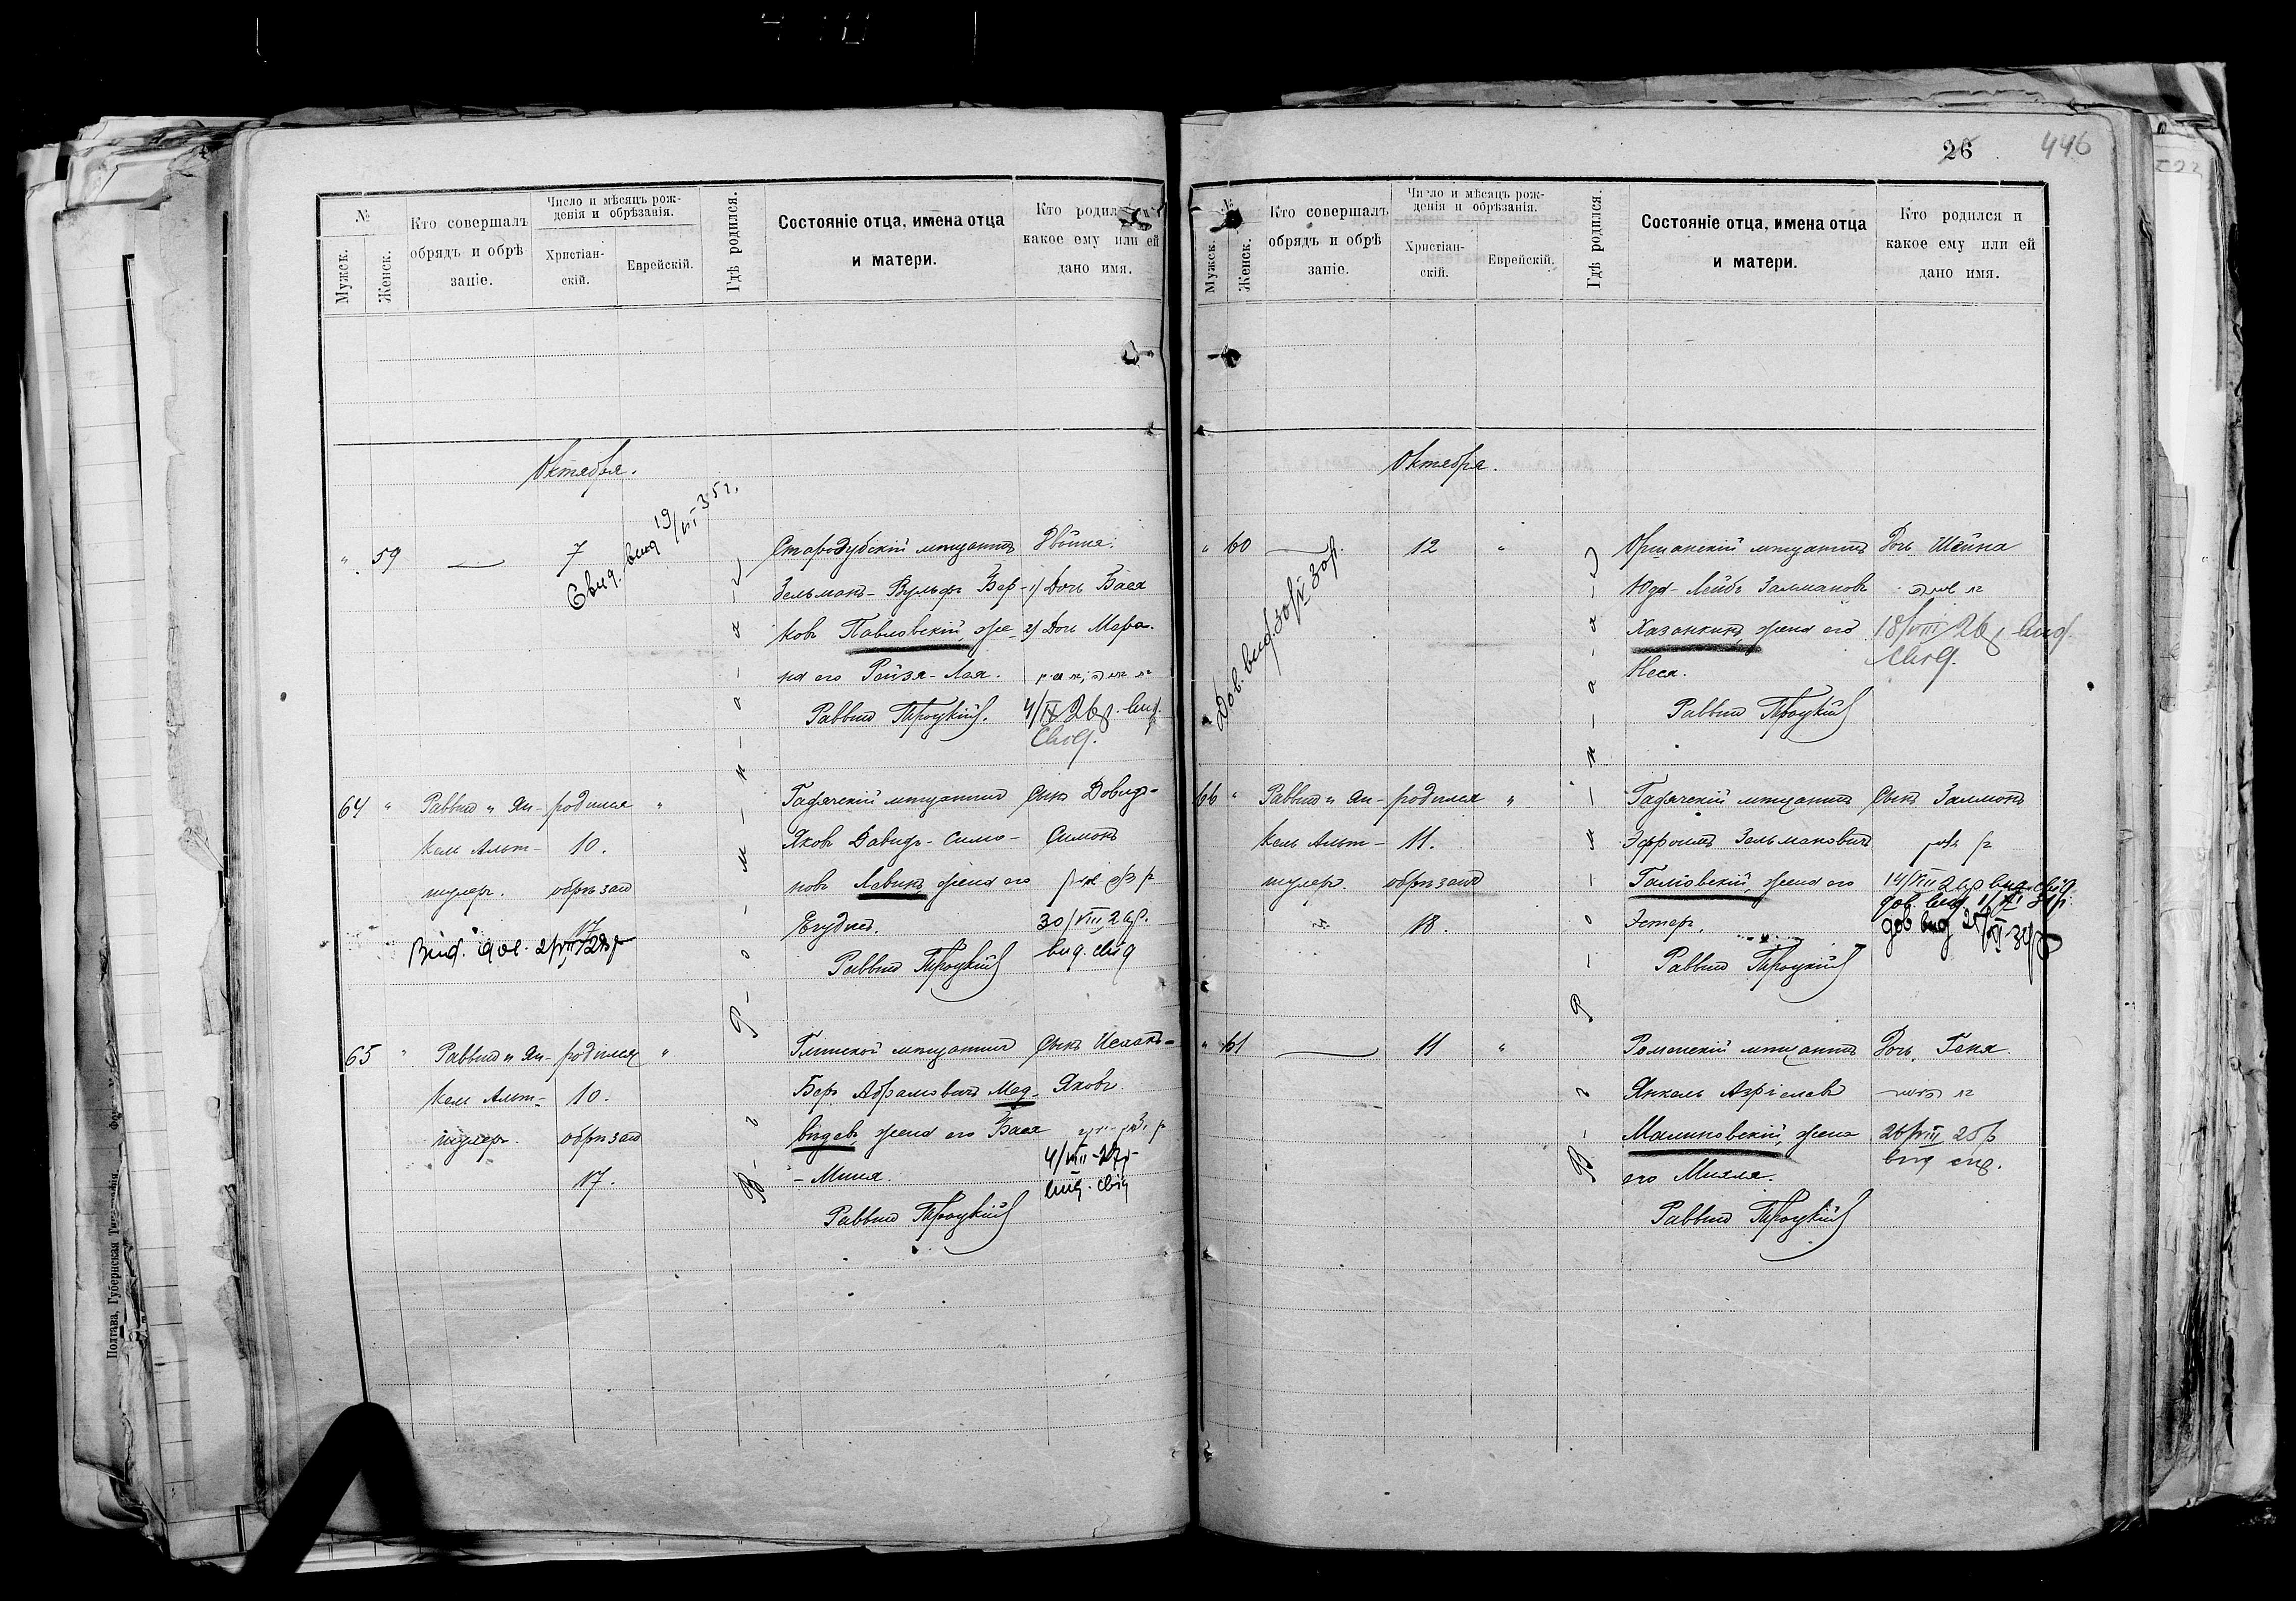 26
446
№
Мужск.
Женск.
Кто совершалъ
обрядъ и обрѣ
заніе.
Число и мѣсяцъ рож-
денія и обрѣзанія.
Христіан-
скій.
Еврейскій.
Гдѣ родился.
Состояніе отца, имена отца
и матери.
Кто родился и
какое ему или ей
дано имя.
Октября.
" 59 — 7
Свид. выд 19/VI-35 г.
Стародубскій мѣщанинъ
Зельманъ-Вульфъ Бер-
ковъ Павловскій, же-
на его Рейзя-Лея.
Раввинъ Троцкій.
Двойня:
1) Дочь Бася
2) Дочь Мера.
4/IX 26 р. вид.
свід.
64 " Раввинъ и Ян-
кель Альт-
шулеръ.
родился "
10.
обрѣзанъ
17
Гадячскій мѣщанинъ
Яковъ Давидъ-Симо-
новъ Левинъ, жена его
Ягудис.
Раввинъ Троцкій
Сынъ Довидъ-
Симонъ
30/VIII 26 р.
вид. свід
65 " Раввинъ и Ян-
кель Альт-
шулеръ.
родился "
10.
обрѣзанъ
17.
Глинскій мѣщанинъ
Беръ Абрамовичъ Мед-
вѣдевъ, жена его Бася
- Миня.
Раввинъ Троцкій
Сынъ Исаакъ-
Яковъ.
4/VIII-27р-
вид. свід
В - г - Р - о - м - н - а - х
Полтава, Губернская
№
Мужск.
Женск.
Кто совершалъ
обрядъ и обрѣ
заніе.
Число и мѣсяцъ рож-
денія и обрѣзанія.
Христіан-
скій.
Еврейскій.
Гдѣ родился.
Состояніе отца, имена отца
и матери.
Кто родился и
какое ему или ей
дано имя.
Октября.
" 60 — 12 "
Дов. вид. 30/IV 30р.
Оршанскій мѣщанинъ
Юда-Лейбъ Залмановъ
Хазанкинъ, жена его
Неся.
Раввинъ Троцкій
Дочь Шейна
18/VIII 26 р вид.
свід.
66 " Раввинъ и Ян-
кель Альт-
шулеръ.
родился "
11.
обрѣзанъ
18.
Гадячскій мѣщанинъ
Эфроимъ Зельмановичъ
жена его
Эстеръ.
Раввинъ Троцкій
Сынъ Залмонъ
14/VIII 26р вид. свід
дов. вид.
дов вид
" 61 — 11 "
Роменскій мѣщанинъ
Янкель Азріелевъ
Малиновскій, жена
его Мияля.
Раввинъ Троцкій
Дочь Геня.
26/VIII 25 р
вид свід.
В - г - Р - о - м - н - а - х